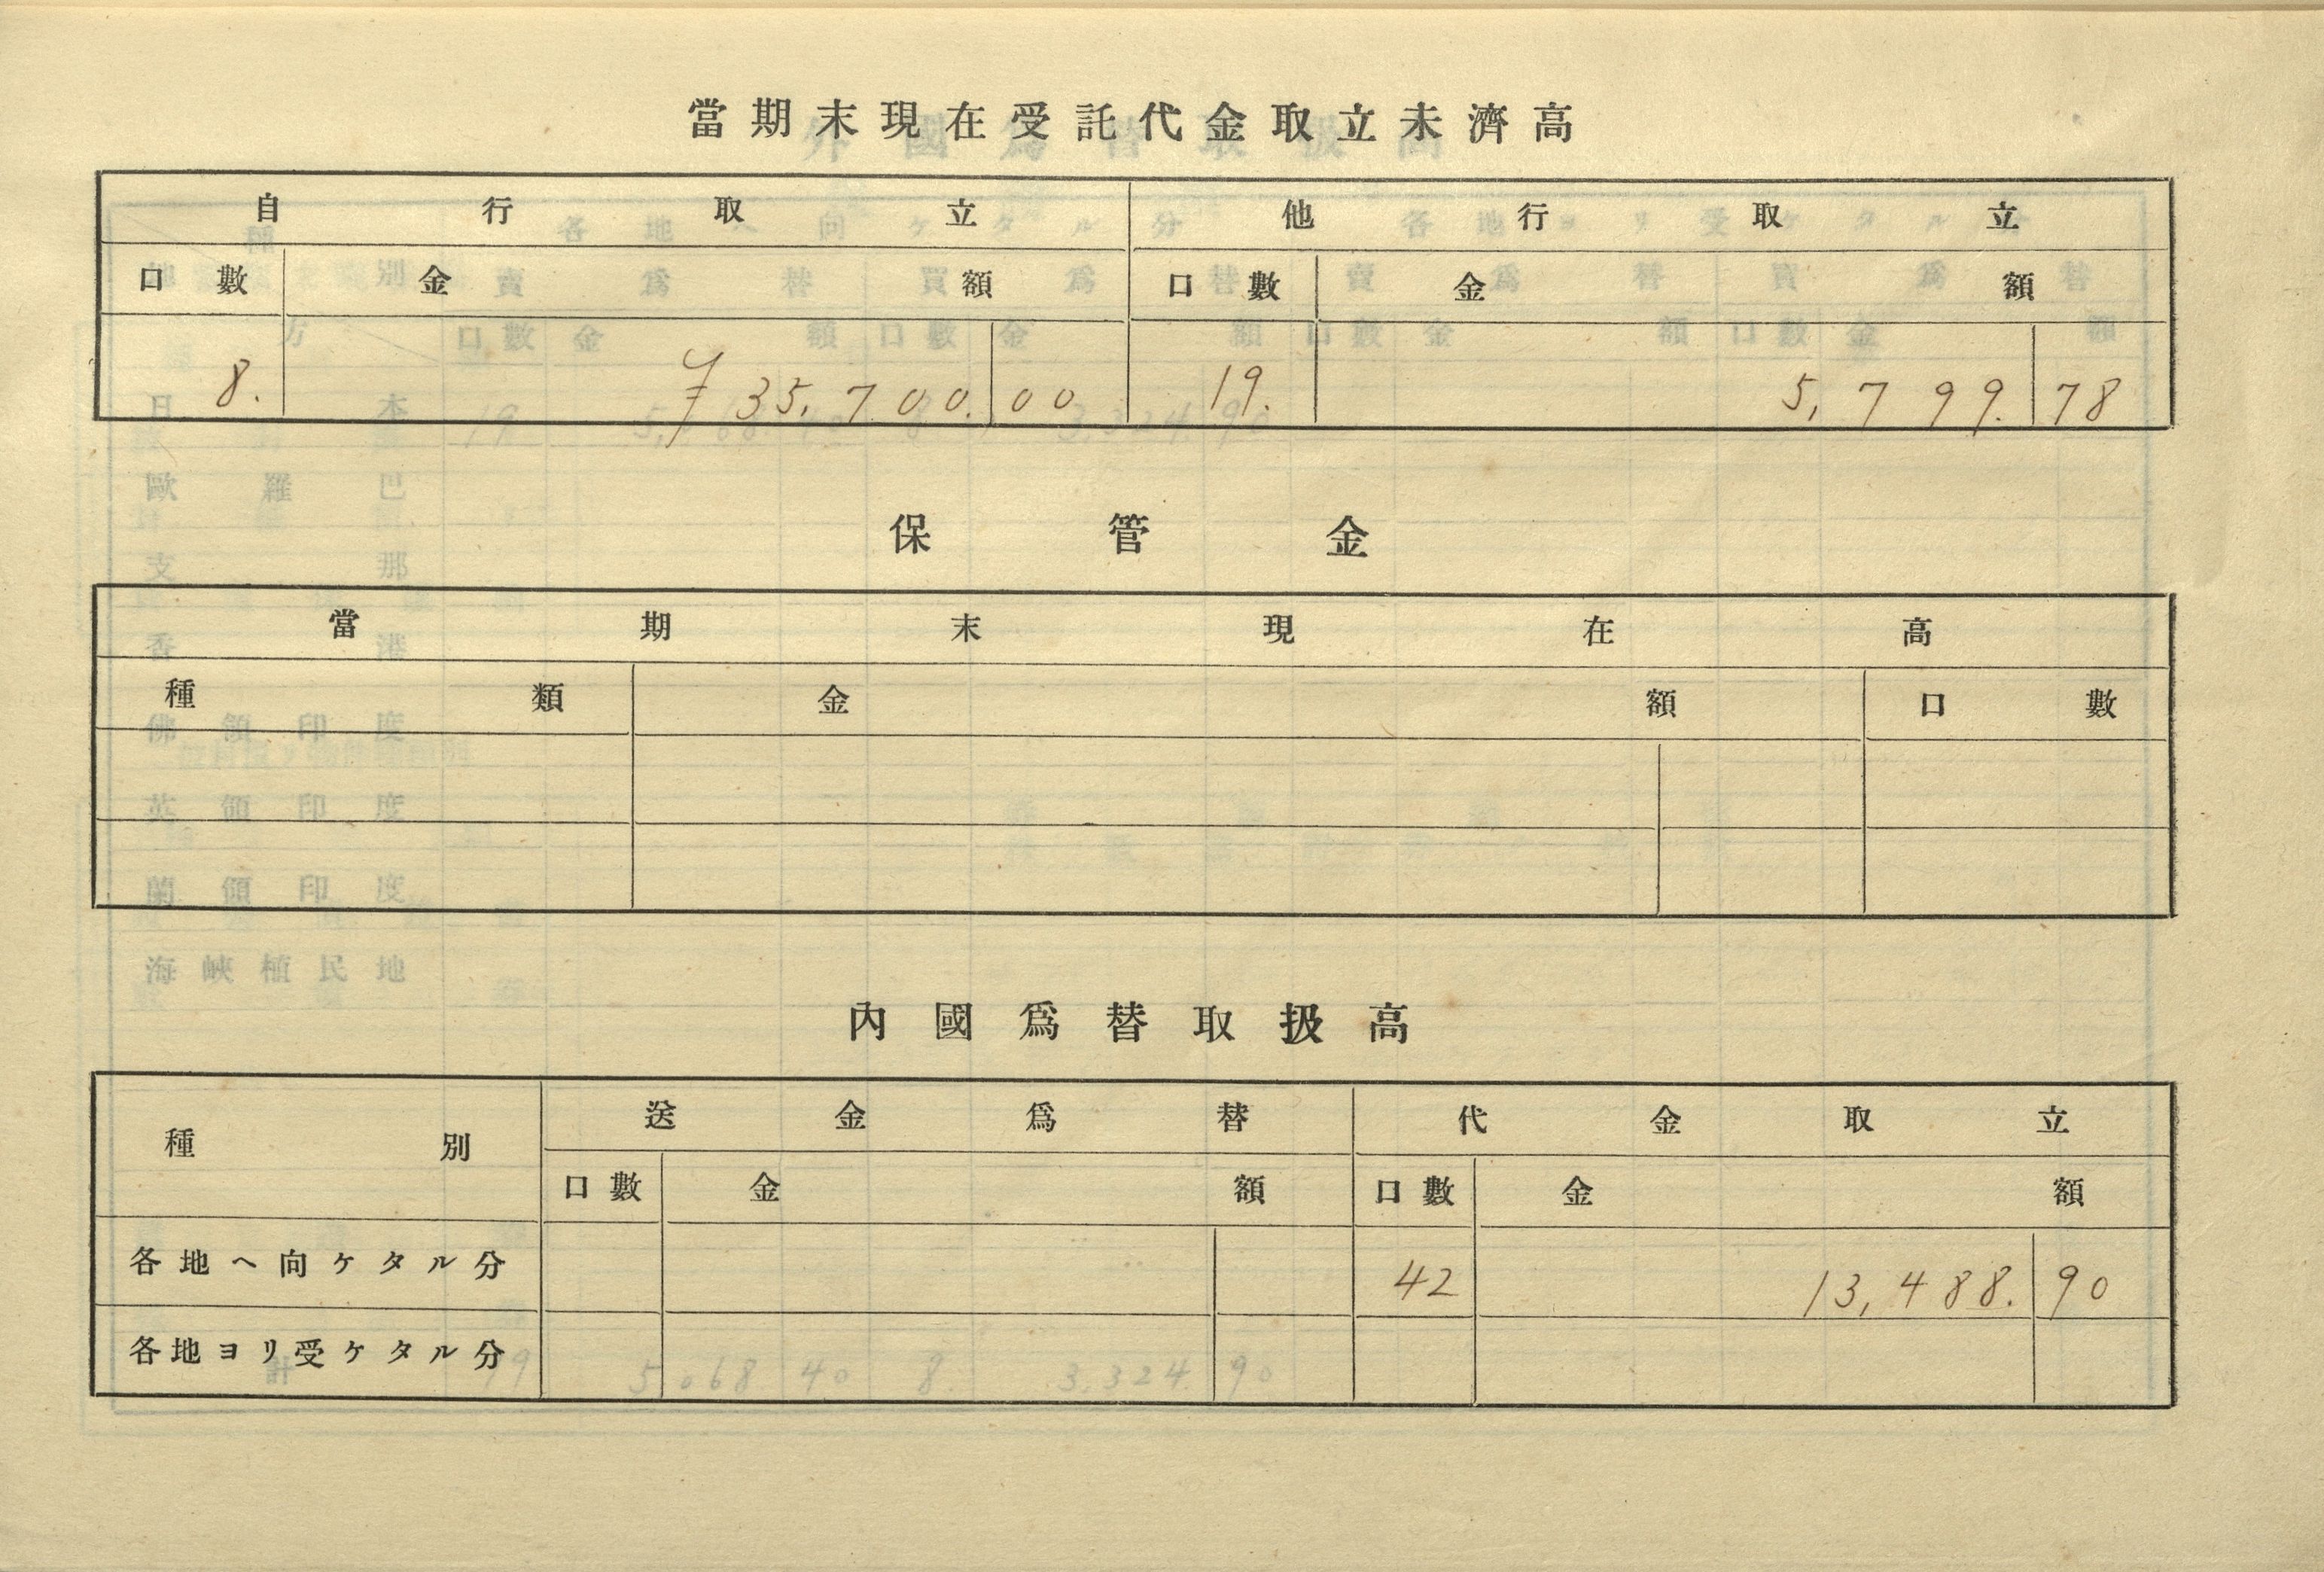 當期末現在受託代金取立未濟高
自行取立 他行取立
口數 金額 口數 金額
8. ¥35,700.00 19. 5,799.78
保管金
當期末現在高
種類 金額 口數
內國爲替取扱高
種別 送金爲替 代金取立
口數 金額 口數 金額
各地ヘ向ケタル分 42 13,488.90
各地ヨリ受ケタル分